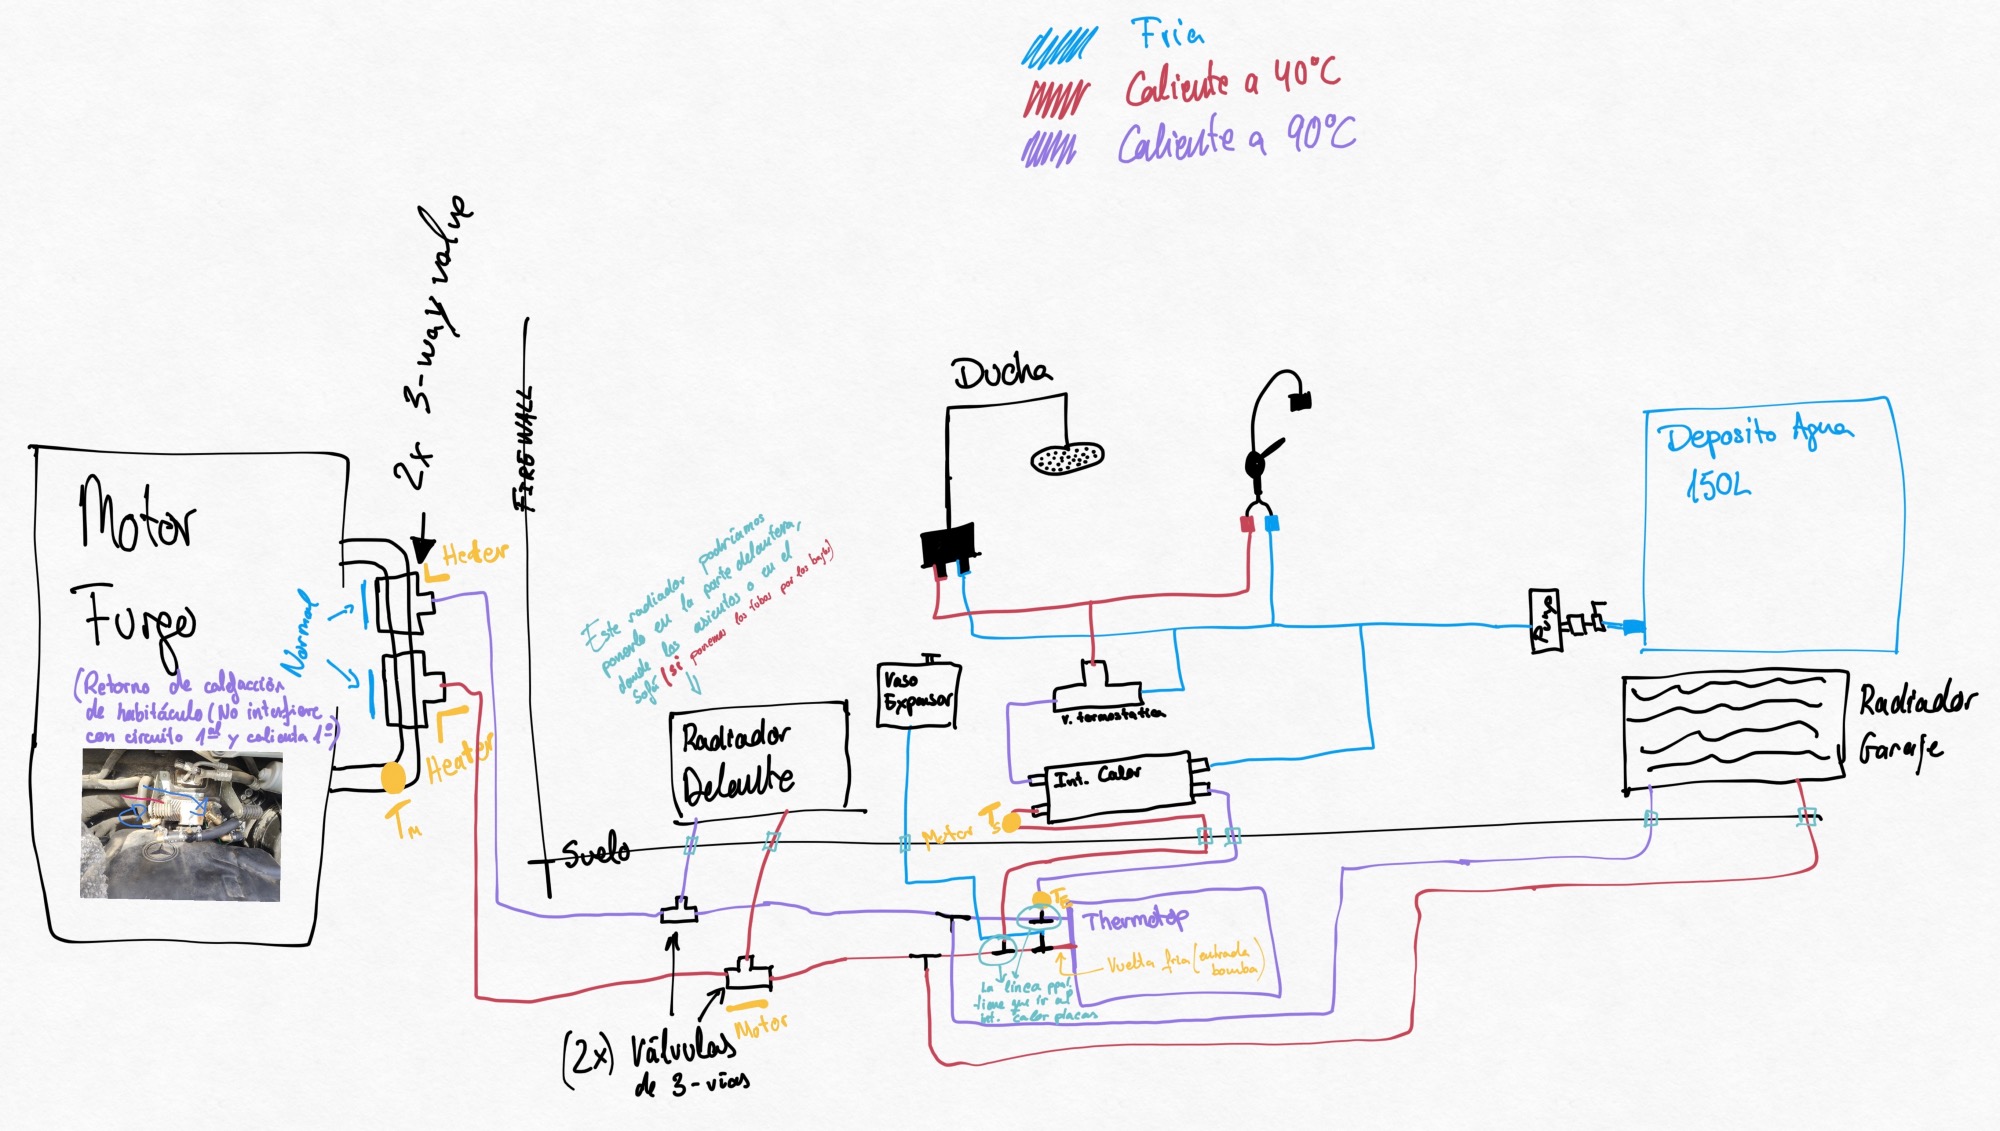 Fria
Caliente a 40°C
Caliente a 90°C
2x 3-way valve
FIREWALL
Motor
Furgo
(Retorno de calefacción
de habitáculo (No interfiere
con circuito 1al y calienta 1º)
Normal
Heater
Heater
TM
Este radiador podríamos
ponerlo en la parte delantera,
donde los asientos o en el
sofá (si ponemos los tubos por los bajos)
Radiador
Delante
Suelo
Ducha
Vaso
Expansor
v. termostatica
Int. Calor
Motor
TS
TE
Thermotop
Vuelta fria (entrada
bomba)
La línea ppal
tiene que ir al
int. calor placas
(2x) Válvulas
de 3-vias
Motor
Deposito Agua
150L
Radiador
Garaje